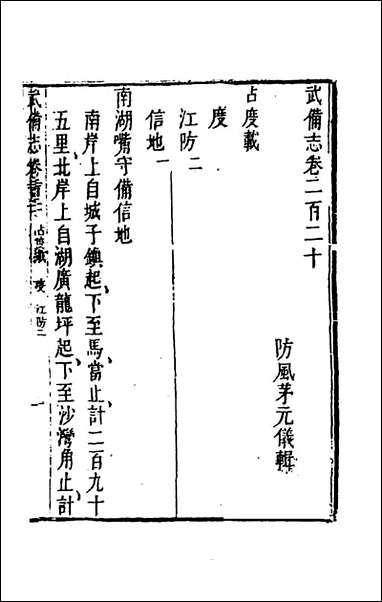 武備志卷二百二十
防風茅元儀輯
占度載
度
江防二
信地一
南湖嘴守備信地
南岸上自城子鎮起、下至馬當止、計二百九十
五里、北岸上自湖廣龍坪起、下至沙灣角止、計
武備志卷二百二十 占度載 度 江防二 一